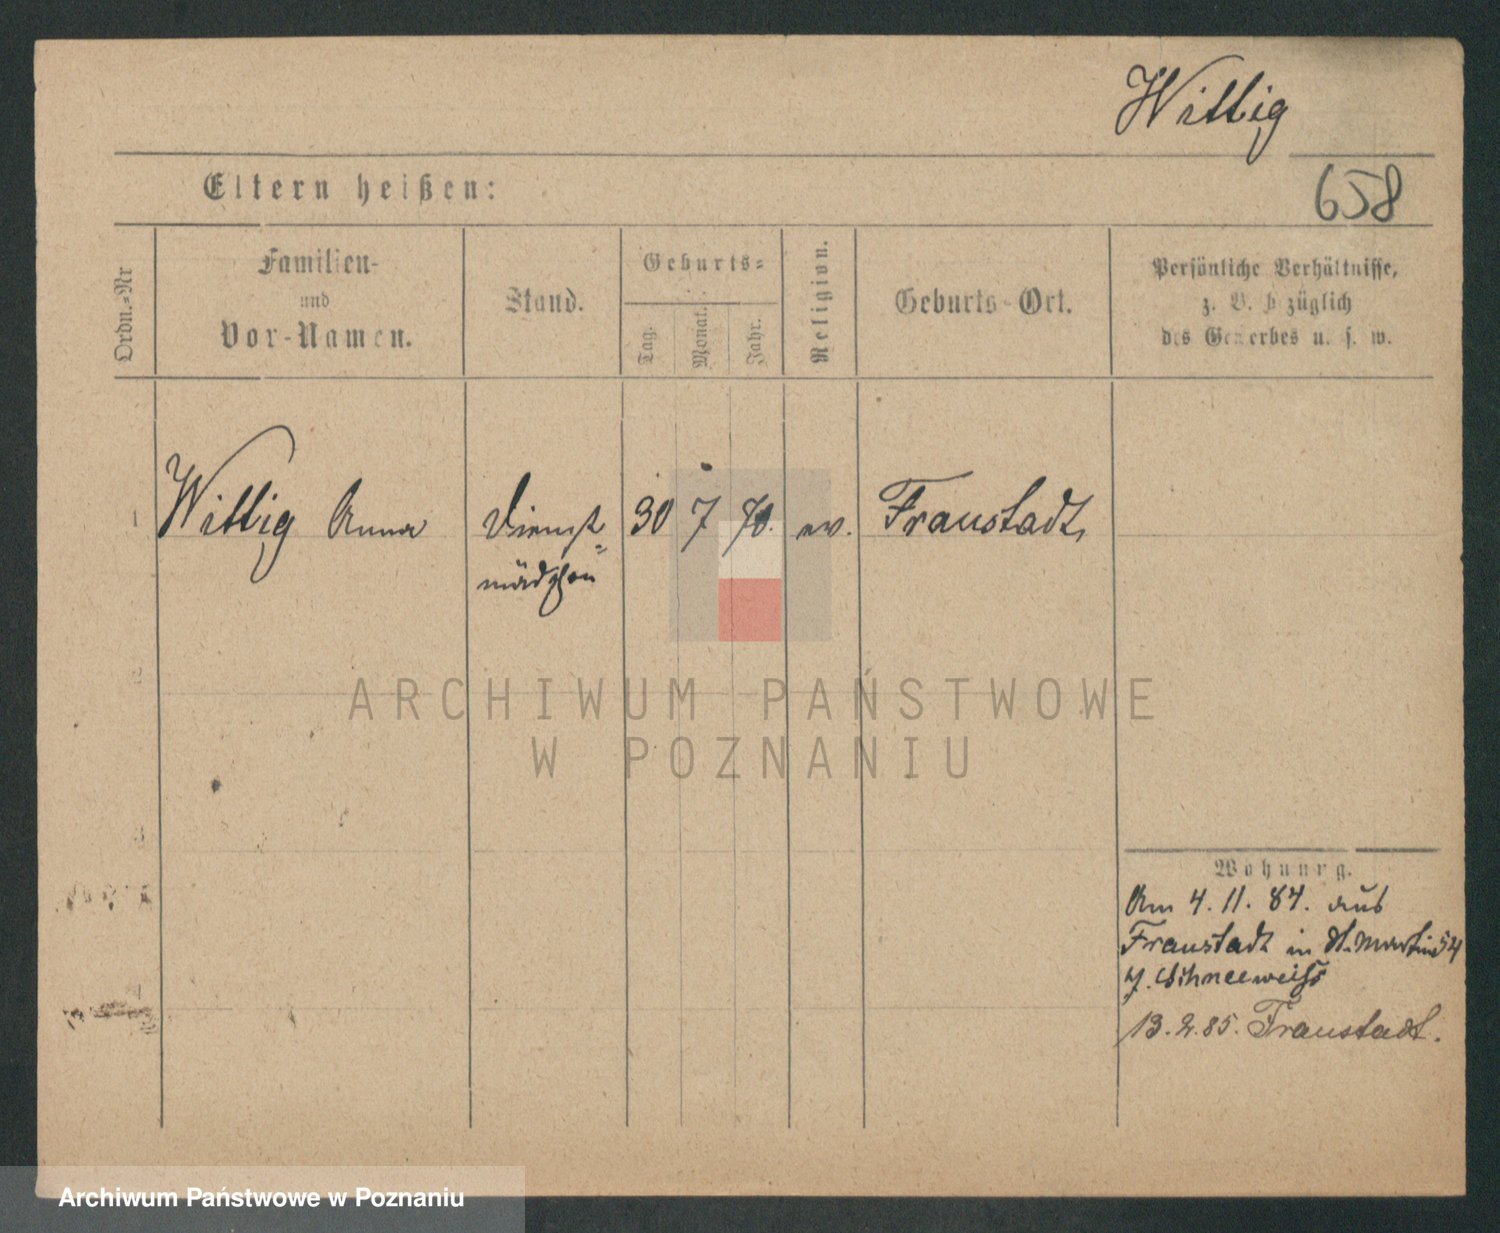 Wittig
Eltern heißen:
658
Ordn.-Nr
Familien-
und
Vor-Namen.
Stand.
Geburts-
Tag.
Monat.
Jahr.
Religion.
Geburts-Ort.
Persönliche Verhältnisse,
z. B. bezüglich
des Gewerbes u. s. w.
1 Wittig Anna Dienst= 30 7 70. ev. Fraustadt,
mädchen
ARCHIWUM PAŃSTWOWE
W POZNANIU
Wohnung.
Am 4. 11. 84. aus
Fraustadt in St. Martin 54
b. Schneeweiss
13. 2. 85. Fraustadt.
Archiwum Państwowe w Poznaniu